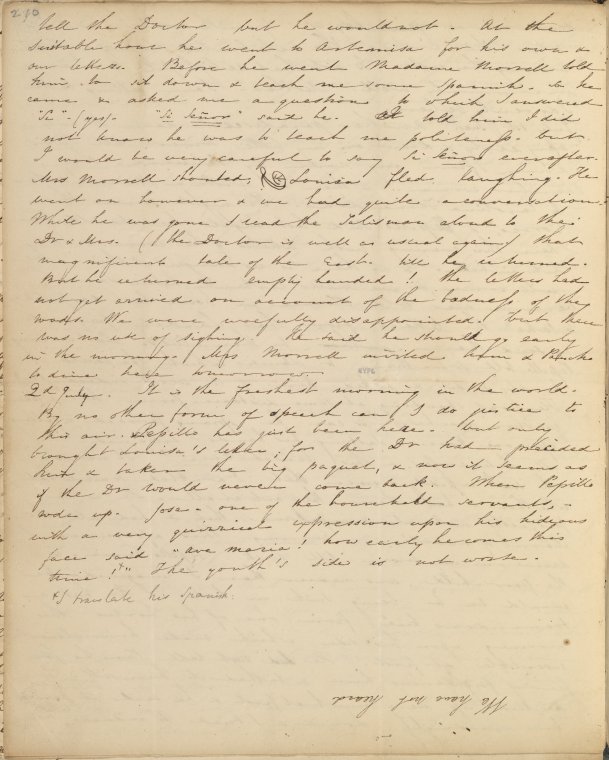 240
tell the Doctor but he would not. At the
suitable hour he went to Artemisa for his own &
our letters. Before he went Madame Morrell told
him to sit down & teach me some Spanish. So he
came & asked me a question to which I answered
"Si" - (yes). "Si Señor" said he. I told him I did
not know he was to teach me politeness - but
I would be very careful to say Si Señor ever after.
Mrs Morrell shouted, & Louisa fled laughing. He
went on however & we had quite a conversation.
While he was gone I read the Talisman aloud to the
Dr & Mrs. (the Doctor is well as usual again) that
magnificent tale of the East. till he returned.
But he returned empty handed! the letters had
not yet arrived on account of the badness of the
roads. We were woefully disappointed - but there
was no use of sighing. He said he should go early
in the morning. Mrs Morrell invited him & Pancho
to dine here tomorrow.
2d July. It is the freshest morning in the world.
By no other form of speech can I do justice to
this air. Pepillo has just been here - but only
brought Louisa's letter, for the Dr had preceded
him & taken the big paquet, & now it seems as
if the Dr would never come back. When Pepillo
rode up - Jose - one of the household servants, -
with a very quizzical expression upon his hideous
face said "ave maria! how early he comes this
time! +" The youth's side is not worse.
+ I translate his Spanish.
We have not heard